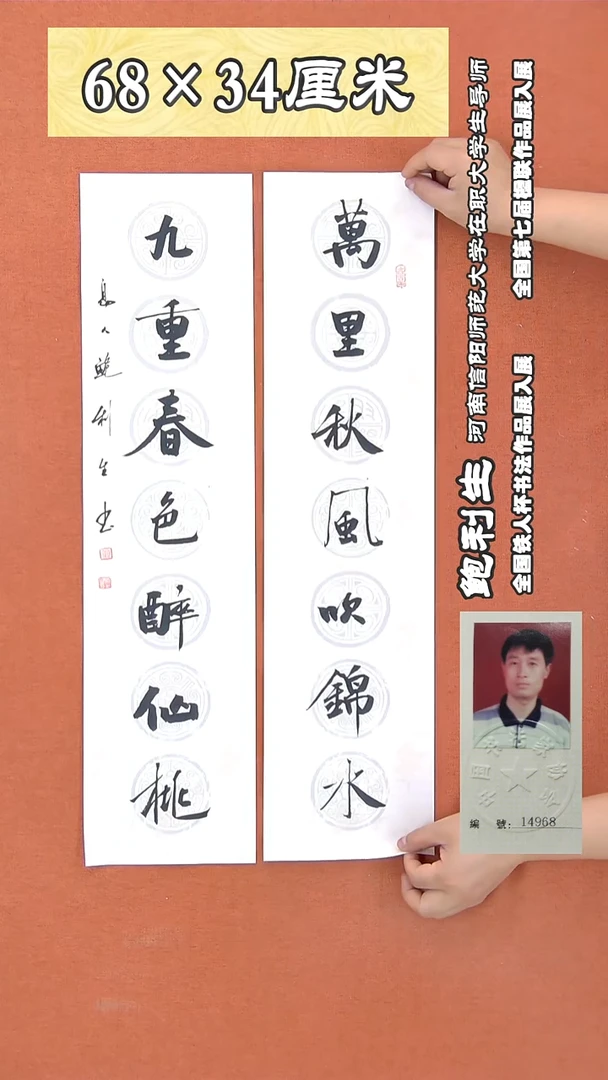 68×34厘米
萬里秋風吹錦水
九重春色醉仙桃
息人鮑利生书
鲍利生 河南信阳师范大学在职大学生导师
全国铁人杯书法作品展入展 全国第七届楹联作品展入展
編 號: 14968